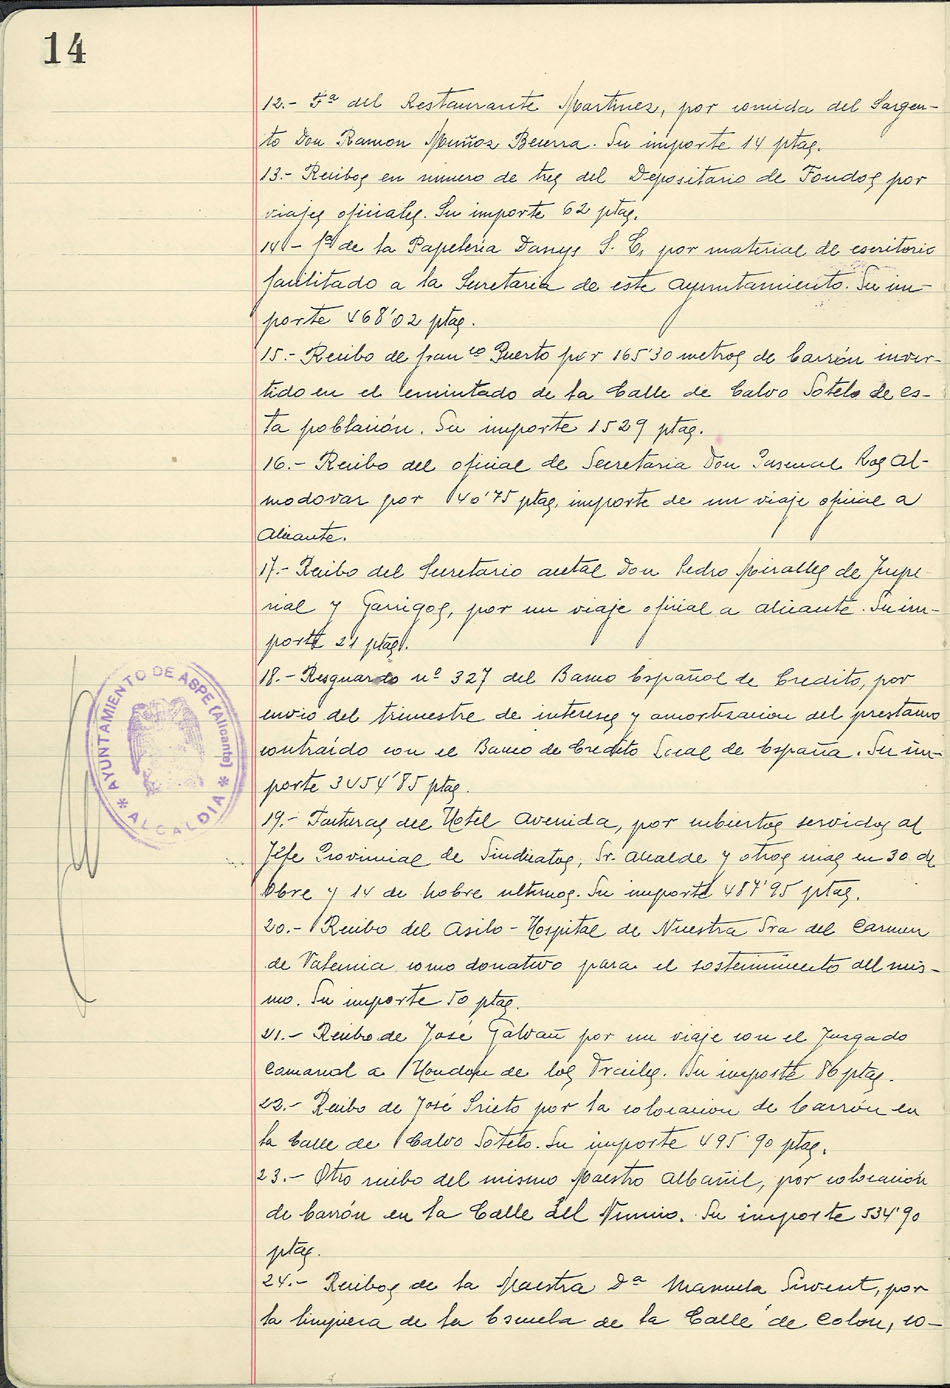 14
12.- Fª del Restaurante Martinez, por comida del Sargen-
to Don Ramon Muñoz Becerra. Su importe 14 ptas.
13.- Recibos en numero de tres del Depositario de Fondos por
viajes oficiales. Su importe 62 ptas.
14.- fª de la Papeleria Danys S. L, por material de escritorio
facilitado a la Secretaria de este Ayuntamiento. Su im-
porte 468'02 ptas.
15.- Recibo de franco Puerto por 165'30 metros de Carrón inver-
tido en el encintado de la Calle de Calvo Sotelo de es-
ta población. Su importe 1529 ptas.
16.- Recibo del oficial de Secretaria Don Pascual Al-
modovar por 40'75 ptas, importe de un viaje oficial a
Alicante.
17.- Recibo del Secretario acctal Don Pedro Miralles de Impe
rial y Garrigos, por un viaje oficial a Alicante. Su im-
porte 21 ptas.
18.- Resguardo nº 327 del Banco Español de Credito, por
envio del trimestre de intereses y amortizacion del prestamo
contraído con el Banco de Credito Local de España. Su im-
porte 3454'85 ptas.
19.- Facturas del Hotel Avenida, por cubiertos servidos al
Jefe Provincial de Sindicatos, Sr. Alcalde y otros mas en 30 de
Obre y 14 de Nobre ultimos. Su importe 487'95 ptas.
20.- Recibo del Asilo-Hospital de Nuestra Sra del Carmen
de Valencia como donativo para el sostenimiento del mis-
mo. Su importe 50 ptas.
21.- Recibo de José Galvañ por un viaje con el Juzgado
Comarcal a Hondon de los Frailes. Su importe 86 ptas.
22.- Recibo de José Prieto por la colocacion de Carrón en
la Calle de Calvo Sotelo. Su importe 495'90 ptas.
23.- Otro recibo del mismo Maestro Albañil, por colocación
de Carrón en la Calle del Nuncio. Su importe 534'90
ptas.
24.- Recibos de la Maestra Dª Manuela Sirvent, por
la limpieza de la Escuela de la Calle de Colon, co-
AYUNTAMIENTO DE ASPE (Alicante)
* ALCALDIA *